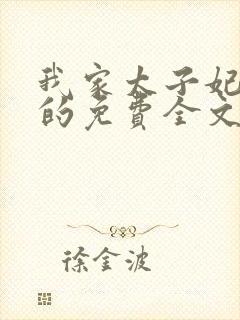 我家太子妃
的免費全文
徐金波